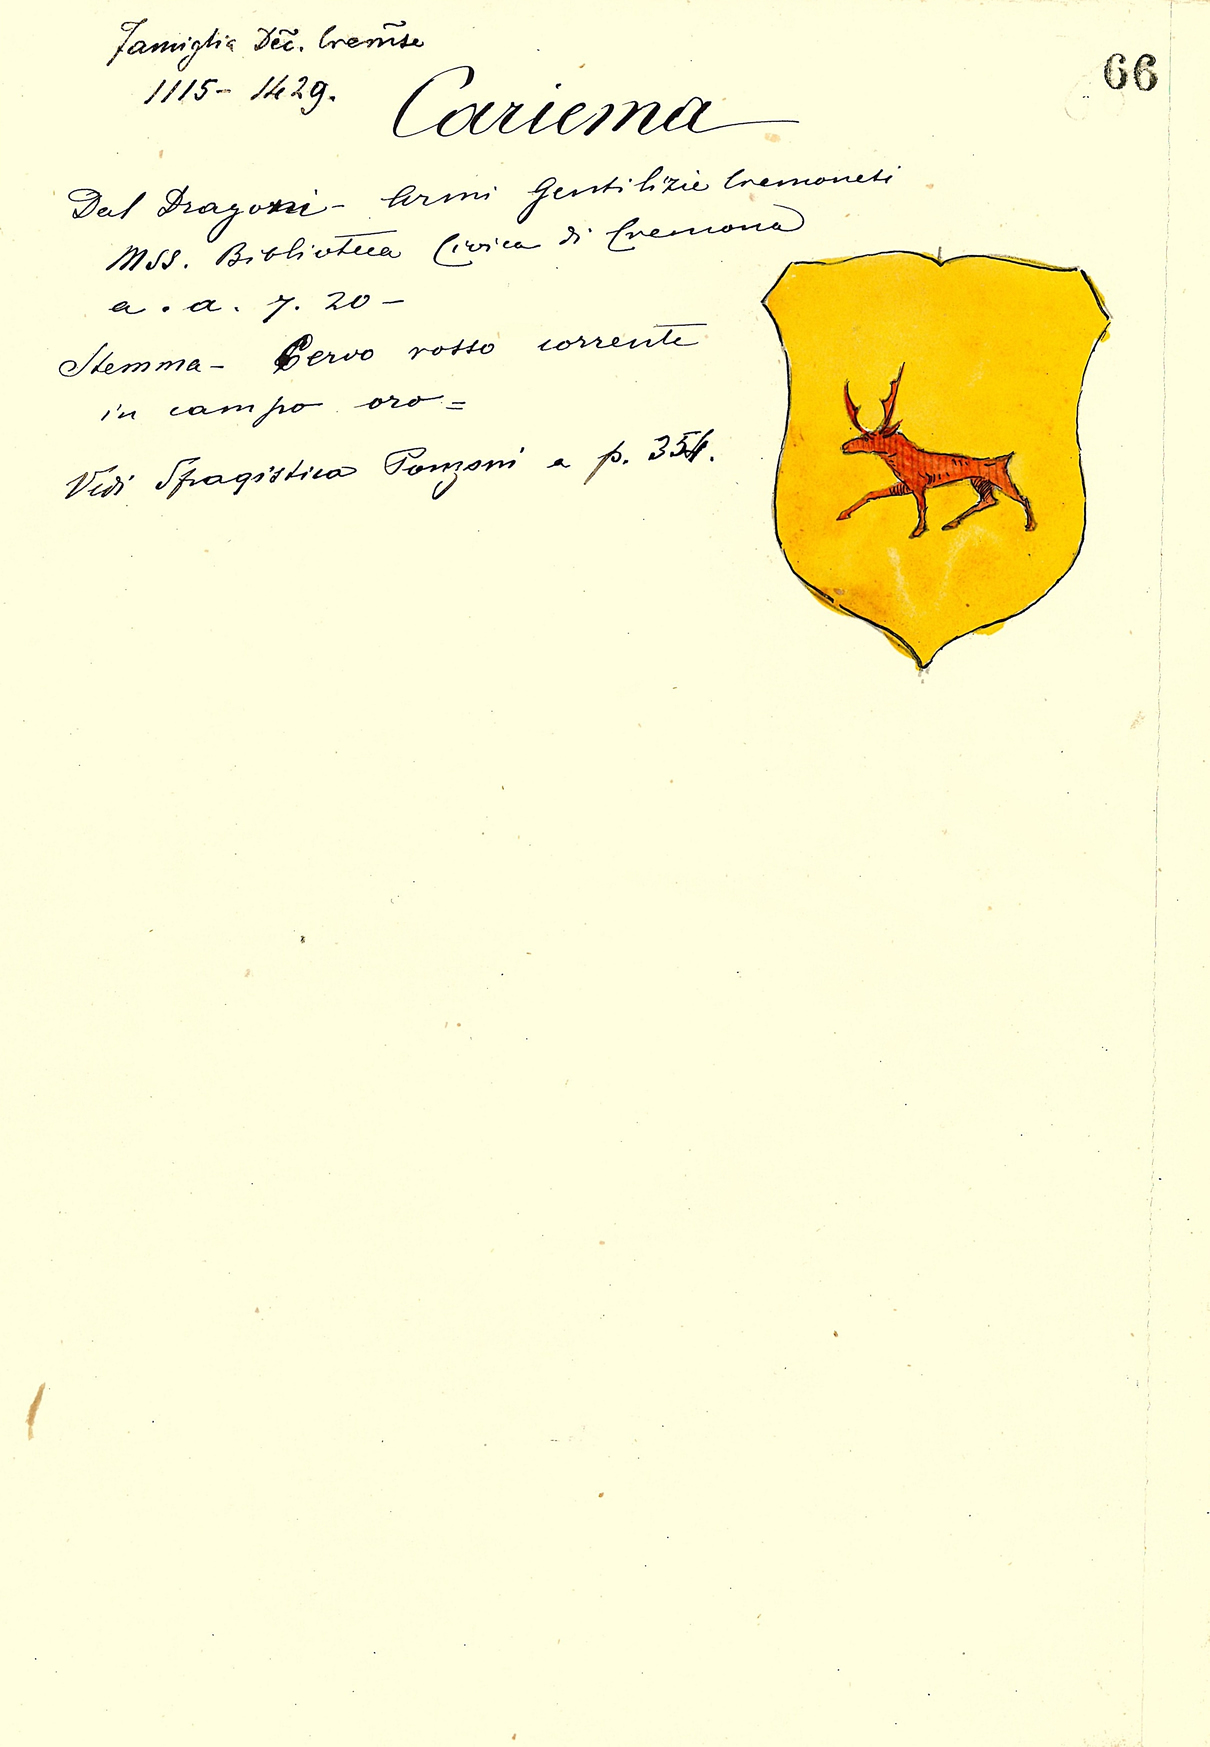 Famiglia Dec̃. Crem̃se
1115 - 1429.
66
Cariema
Dal Dragoni - Armi Gentilizie Cremonesi
Mss. Biblioteca Civica di Cremona
a. a. 7. 20 -
Stemma - Cervo rosso corrente
in campo oro =
Vedi Sfragistica Ponzoni a p. 354.